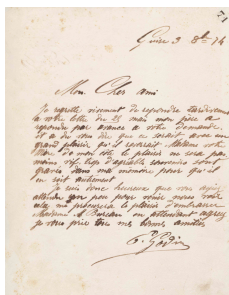 Guise 3 8bre 74
Mon Cher ami
Je regrette vivement de repondre tardivement
à votre lettre du 25 mais mon père a
repondu par avance à votre demande
et a du vous dire que ce serait avec un
grand plaisir qu'il recevrait Madame votre
Mère de mon côté le plaisir ne sera pas
moins vif trop d'agréables souvenirs sont
gravés dans ma mémoire pour qu'il
en soit autrement
Je suis donc heureux que vous ayez
attendu un peu pour venir nous voir
cela me procurera le plaisir d'embrasser
en attendant agréez
je vous prie tous mes bonnes amitiés
E. Godin